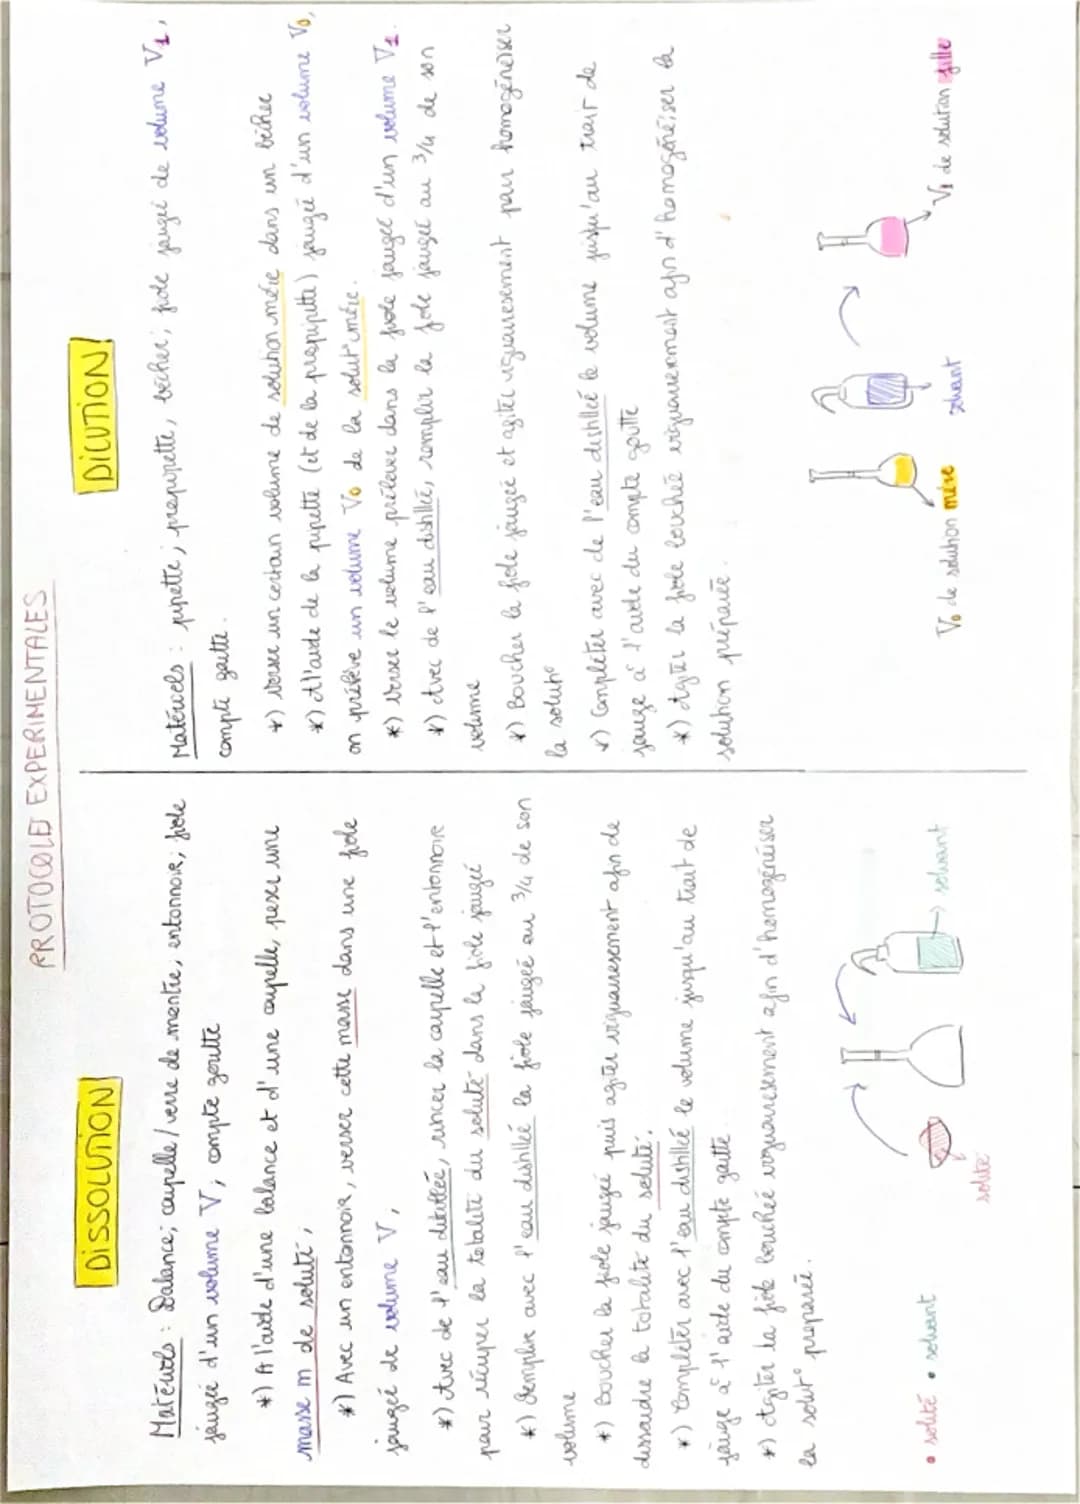 PROTOCOLES EXPERIMENTALES
DISSOLUTION
Matériels : Balance; coupelle/verre de montre, entonnoir; fiole
jaugée d'un volume V; compte goutte
*) A l'aide d'une balance et d'une coupelle, peser une
masse m de soluté,
*) Avec un entonnoir, verser cette masse dans une fiole
jaugée de volume V,
*) Avec de l'eau distillée, rincer la coupelle et l'entonnoire
pour récuper la totalité du soluté dans la fiole jaugée
*) Remplir avec l'eau distillé la fiole jaugée au 3/4 de son
volume
*) Boucher la fiole jaugée puis agiter vigouresement afin de
dissoudre la totalité du soluté.
*) Compléter avec l'eau distillé le volume jusqu'au trait de
jauge à l'aide du compte goutte.
*) Agiter la fiole bouchée vigouresement afin d'homogénéiser
la solut° préparée.
• soluté • solvant
soluté
→ solvant
DILUTION
Matériels : pipette; propipette, bécher; fiole jaugée de volume V1,
compte goutte.
*) Verser un certain volume de solution mère dans un bécher
*) A l'aide de la pipette (et de la propipette) jaugée d'un volume V0,
on prélève un volume V0 de la solut° mère.
*) Verser le volume prélevé dans la fiole jaugée d'un volume V1.
*) Avec de l'eau distillée, remplir la fiole jaugée au 3/4 de son
volume
*) Boucher la fiole jaugée et agiter vigouresement pour homogénéiser
la solut°
*) Compléter avec de l'eau distillée le volume jusqu'au trait de
jauge à l'aide du compte goutte
*) Agiter la fiole bouchée vigouremment afin d'homogénéiser la
solution préparée.
V0 de solution mère
solvant
V1 de solution fille